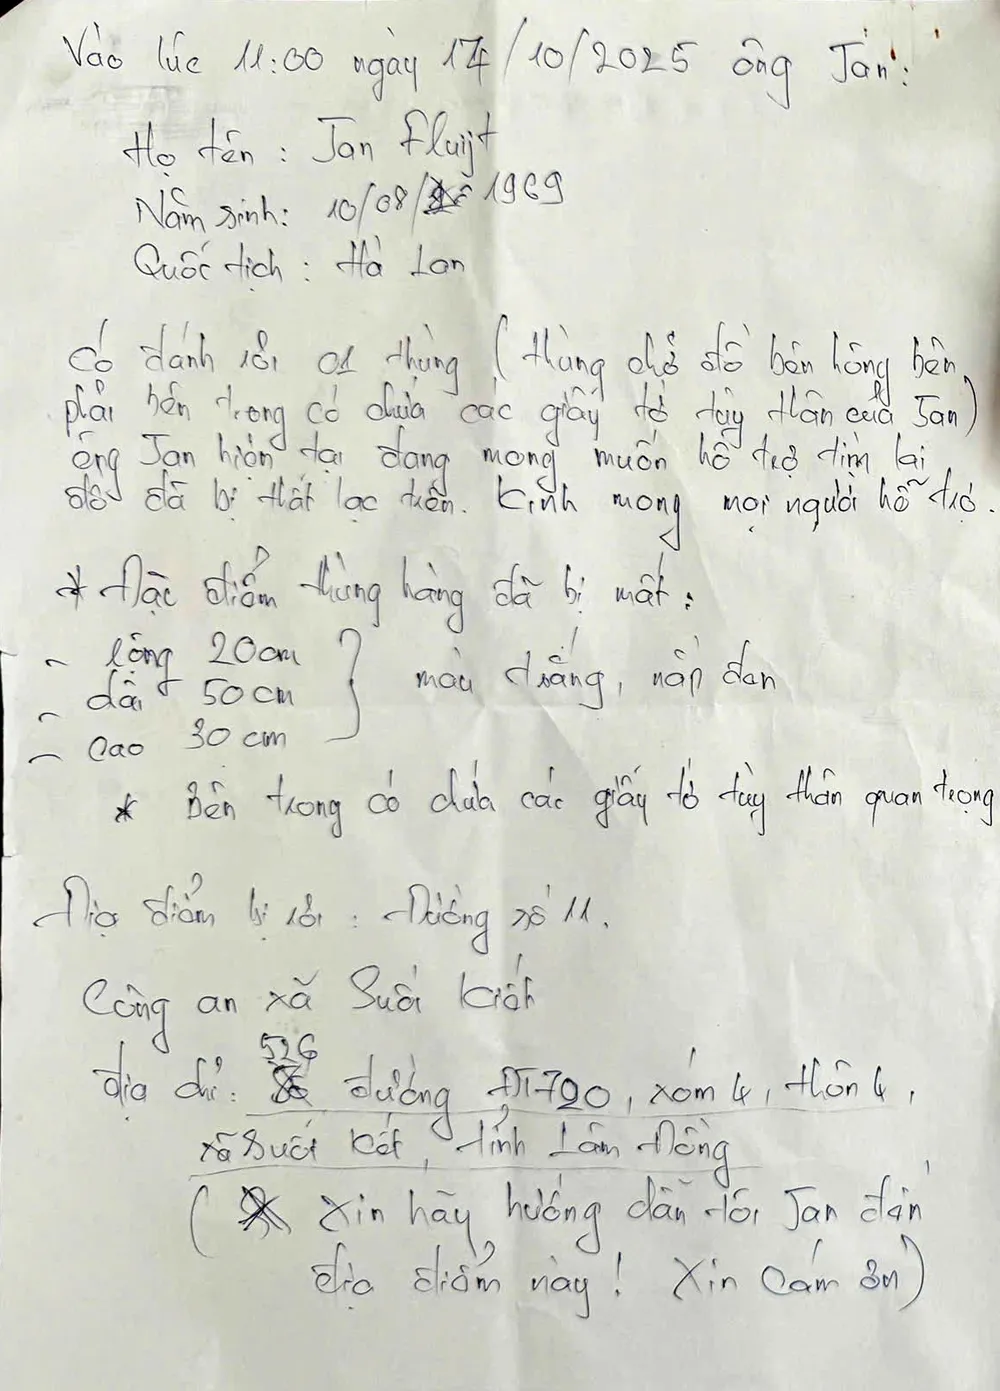 Vào lúc 11:00 ngày 17/10/2025 ông Jan:
Họ tên : Jan Fluijt
Năm sinh: 10/08/1969
Quốc tịch : Hà Lan
Có đánh rơi 01 thùng (thùng chở đồ bên hông bên
phải bên trong có chứa các giấy tờ tùy thân của Jan)
ông Jan hiện tại đang mong muốn hỗ trợ tìm lại
đồ đã bị thất lạc trên. Kính mong mọi người hỗ trợ.
* Đặc điểm thùng hàng đã bị mất:
- rộng 20cm
- dài 50cm
- cao 30cm
màu trắng, nắp đen
* Bên trong có chứa các giấy tờ tùy thân quan trọng
Địa điểm bị rơi : Đường số 11.
Công an xã Suối Kiết
địa chỉ: 526 đường ĐT720, xóm 4, thôn 4,
xã Suối Kiết, tỉnh Lâm Đồng
( Xin hãy hướng dẫn tôi Jan đến
địa điểm này! Xin cám ơn)